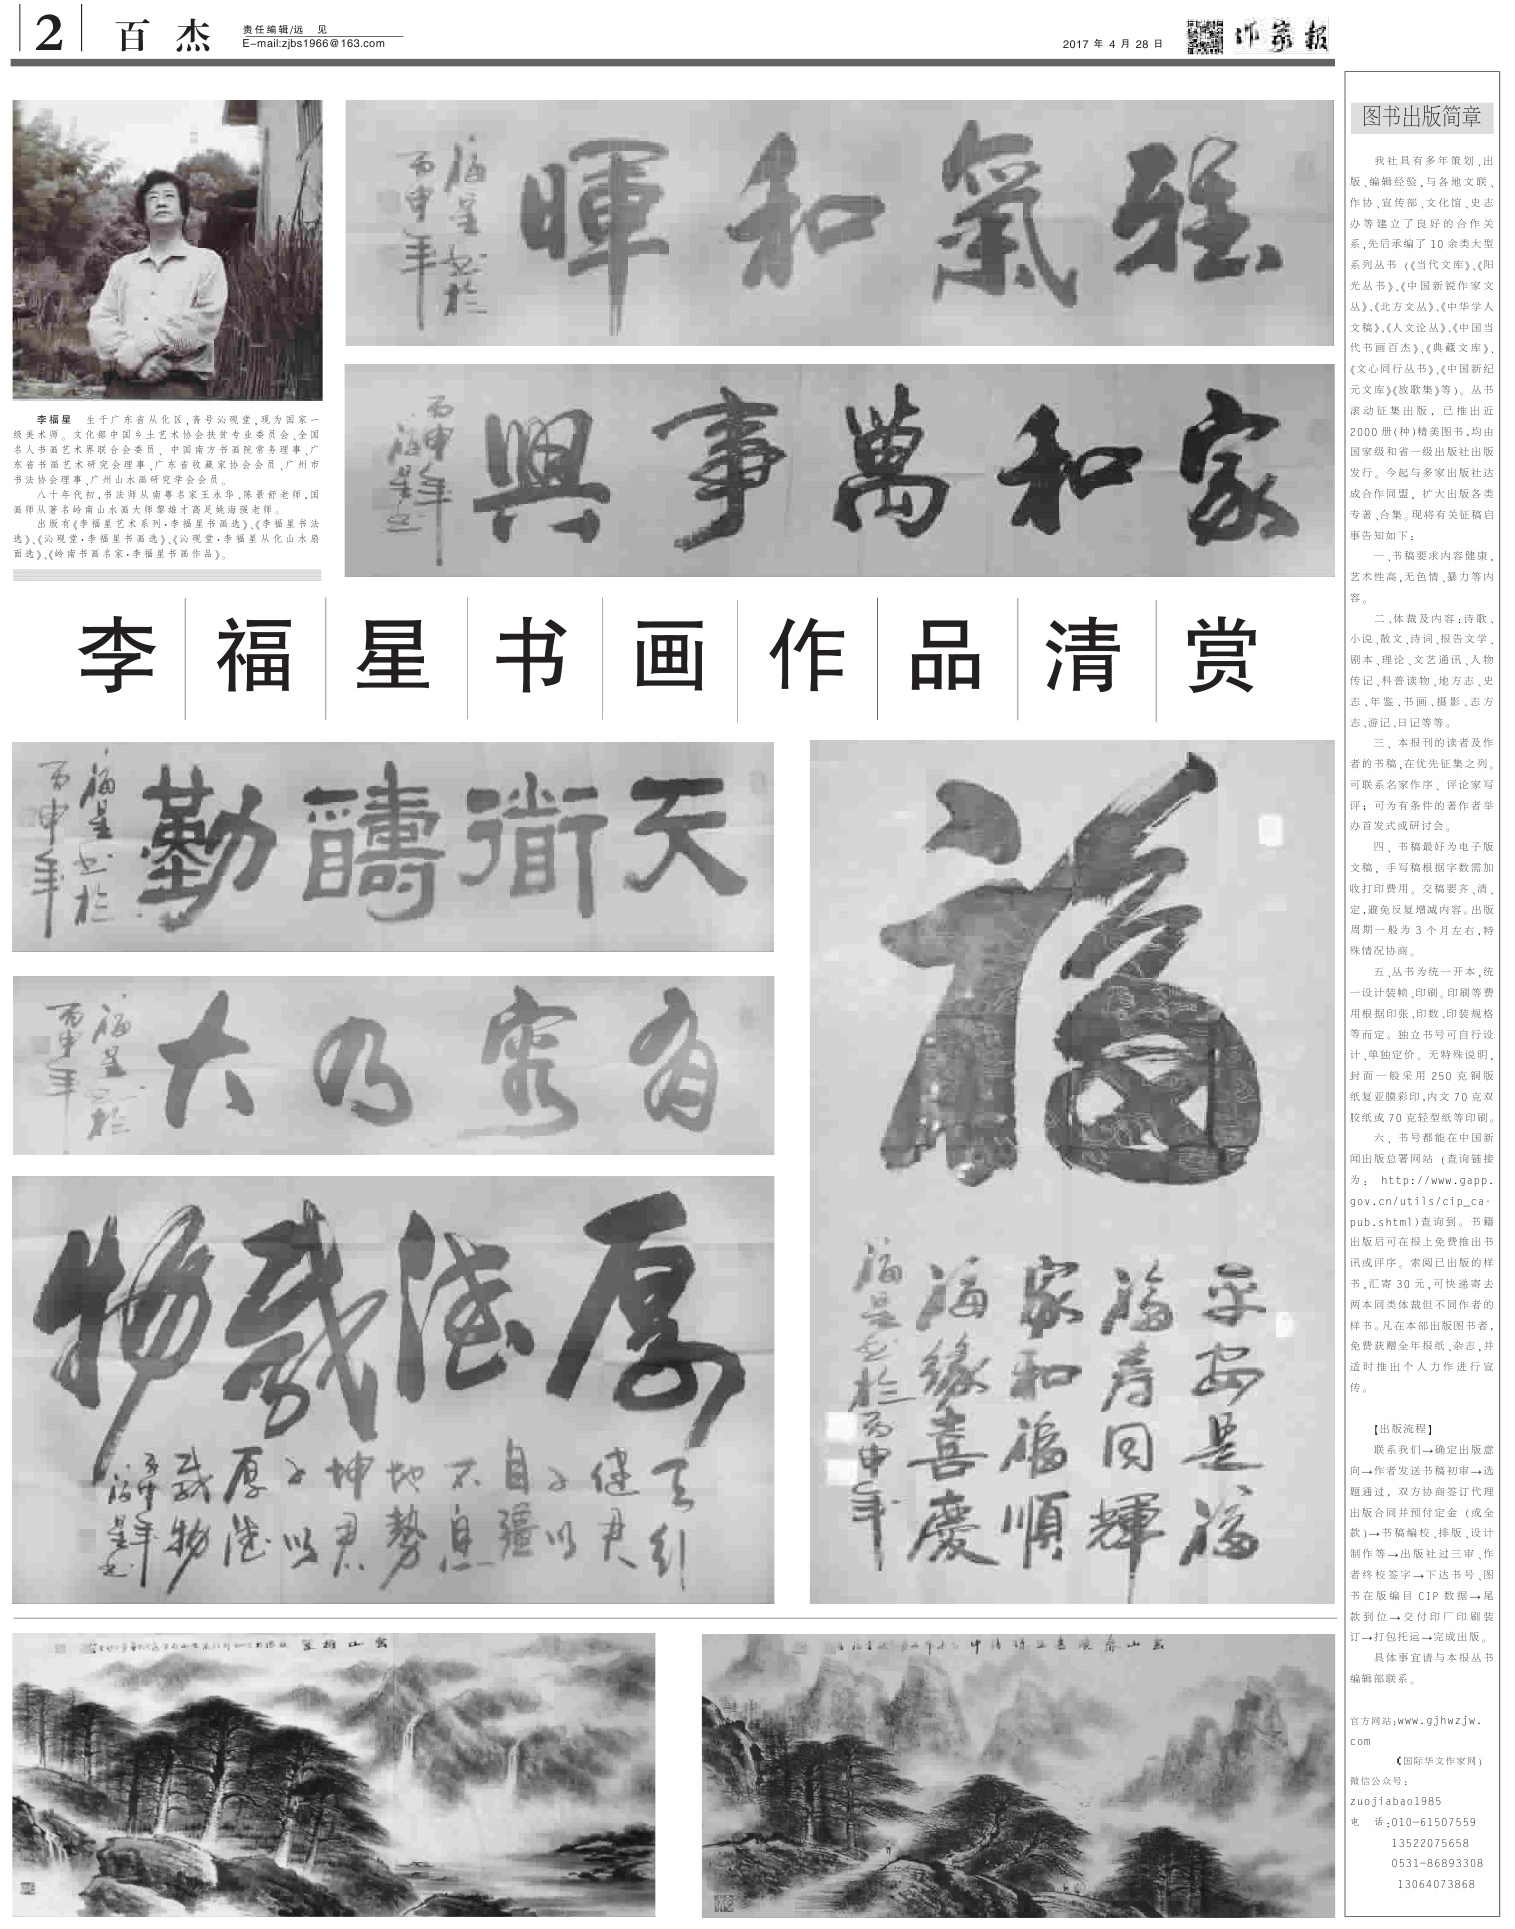 2
百杰
责任编辑/远 见
E-mail:zjbs1966@163.com
2017 年 4 月 28 日
作家报
雅氣和暉
福星書於
丙申年
家和萬事興
丙申年
福星書
李福星 生于广东省从化区,斋号沁砚堂,现为国家一
级美术师。文化部中国乡土艺术协会扶贫专业委员会、全国
名人书画艺术界联合会委员、中国南方书画院常务理事、广
东省书画艺术研究会理事、广东省收藏家协会会员、广州市
书法协会理事、广州山水画研究学会会员。
八十年代初,书法师从南粤名家王永华、陈景舒老师,国
画师从著名岭南山水画大师黎雄才高足姚海强老师。
出版有《李福星艺术系列·李福星书画选》、《李福星书法
选》、《沁砚堂·李福星书画选》、《沁砚堂·李福星从化山水扇
面选》、《岭南书画名家·李福星书画作品》。
李福星书画作品清赏
天道酬勤
福星書於
丙申年
有容乃大
福星書於
丙申年
厚德载物
天行
健君
子以
自強
不息
地勢
坤君
子以
厚德
载物
丙申年
福星書
福
平安是福
福壽同輝
家和福順
福緣喜慶
福星書於
丙申年
图书出版简章
我社具有多年策划、出
版、编辑经验,与各地文联、
作协、宣传部、文化馆、史志
办等建立了良好的合作关
系,先后承编了 10 余类大型
系列丛书(《当代文库》、《阳
光丛书》、《中国新锐作家文
丛》、《北方文丛》、《中华学人
文稿》、《人文论丛》、《中国当
代书画百杰》、《典藏文库》、
《文心同行丛书》、《中国新纪
元文库》《放歌集》等)。丛书
滚动征集出版,已推出近
2000 册(种)精美图书,均由
国家级和省一级出版社出版
发行。今起与多家出版社达
成合作同盟,扩大出版各类
专著、合集。现将有关征稿启
事告知如下:
一、书稿要求内容健康,
艺术性高,无色情、暴力等内
容。
二、体裁及内容:诗歌、
小说、散文、诗词、报告文学、
剧本、理论、文艺通讯、人物
传记、科普读物、地方志、史
志、年鉴、书画、摄影、志方
志、游记、日记等等。
三、本报刊的读者及作
者的书稿,在优先征集之列。
可联系名家作序、评论家写
评;可为有条件的著作者举
办首发式或研讨会。
四、书稿最好为电子版
文稿,手写稿根据字数需加
收打印费用。交稿要齐、清、
定,避免反复增减内容。出版
周期一般为 3 个月左右,特
殊情况协商。
五、丛书为统一开本,统
一设计装帧、印刷。印刷等费
用根据印张、印数、印装规格
等而定。独立书号可自行设
计、单独定价。无特殊说明,
封面一般采用 250 克铜版
纸复亚膜彩印,内文 70 克双
胶纸或 70 克轻型纸等印刷。
六、书号都能在中国新
闻出版总署网站(查询链接
为:http://www.gapp.
gov.cn/utils/cip_ca-
pub.shtml)查询到。书籍
出版后可在报上免费推出书
讯或评序。索阅已出版的样
书,汇寄 30 元,可快递寄去
两本同类体裁但不同作者的
样书。凡在本部出版图书者,
免费获赠全年报纸、杂志,并
适时推出个人力作进行宣
传。
【出版流程】
联系我们→确定出版意
向→作者发送书稿初审→选
题通过,双方协商签订代理
出版合同并预付定金(或全
款)→书稿编校、排版、设计
制作等→出版社过三审、作
者终校签字→下达书号、图
书在版编目 CIP 数据→尾
款到位→交付印厂印刷装
订→打包托运→完成出版。
具体事宜请与本报丛书
编辑部联系。
官方网站:www.gjhwzjw.
com
(国际华文作家网)
微信公众号:
zuojiabao1985
电 话:010-61507559
13522075658
0531-86893308
13064073868